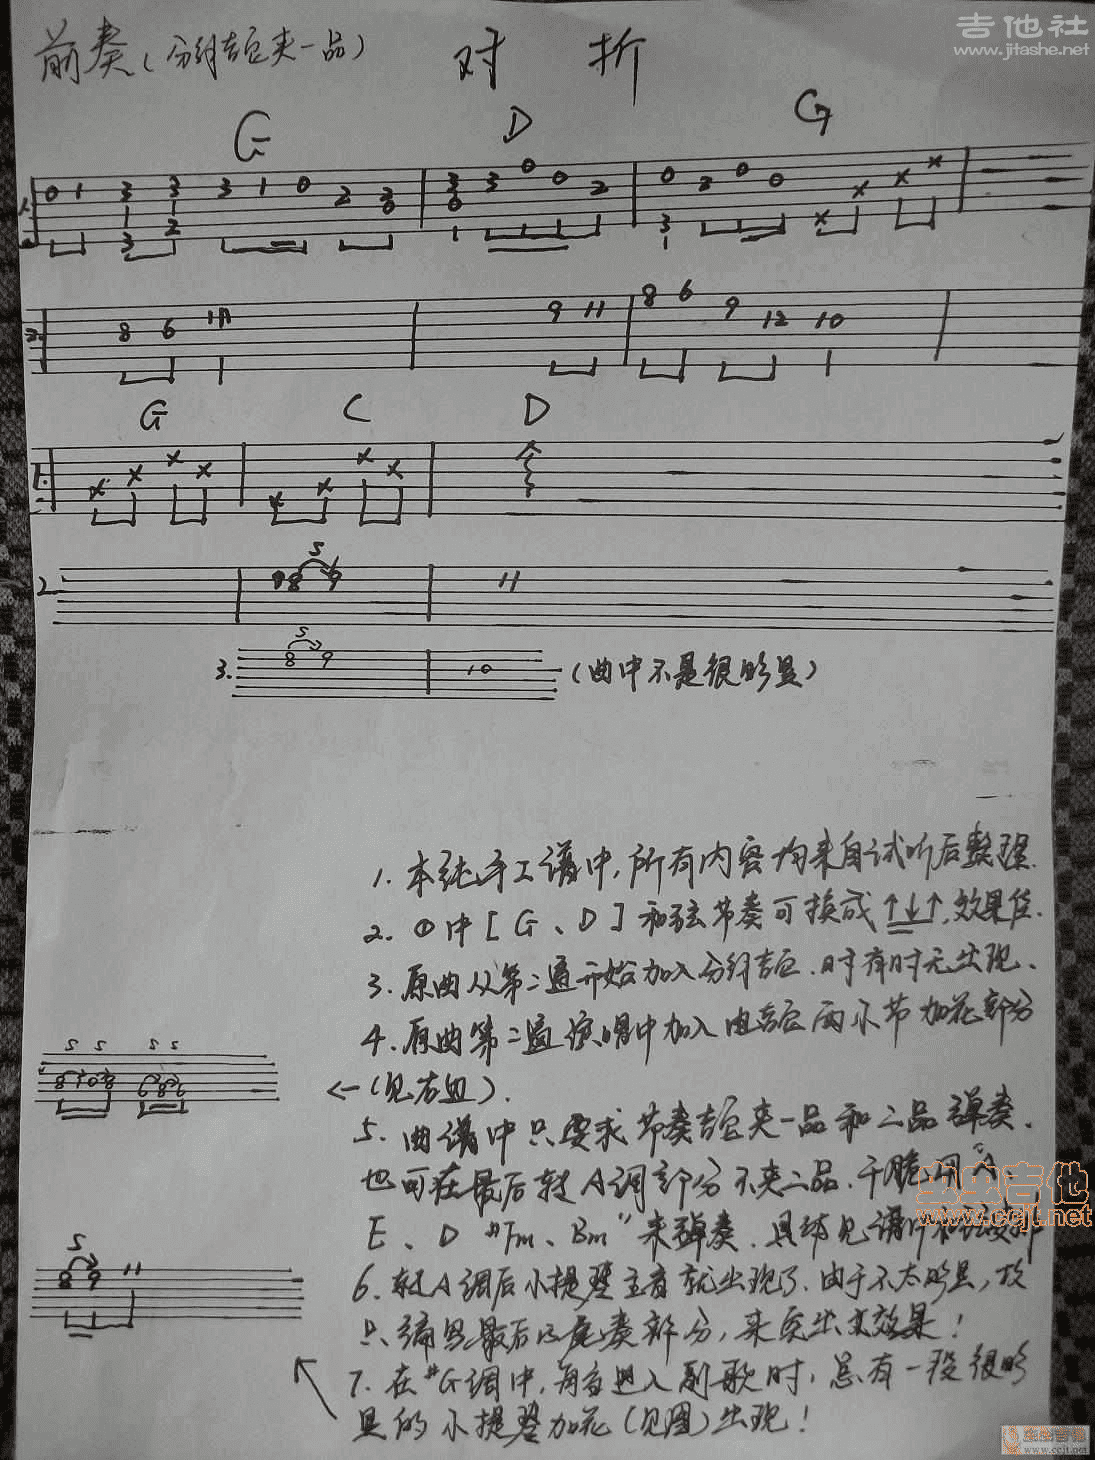 吉他社
www.jitashe.net
前奏(分解吉它夹一品)
对 折
G D G
0 1 3 3 3 1 0 2 3 3 3 0 0 2 0 2 0 0 × × × ×
3 2 0 0 3
8 6 11 9 11 8 6 9 12 10
G C D
× × × × × × × ×
2 8 S 9 11
3. 8 S 9 10 (曲中不是很明显)
1. 本纯手工谱中,所有内容均来自试听后整理.
2. ①中[G、D]和弦节奏可换成↑↓↑,效果佳.
3. 原曲从第二遍开始加入分解吉它.时有时无出现.
4. 原曲第二遍演唱中加入电吉它两小节加花部分
S S S S
8 10 8 6 8 6
←(见右血).
5. 曲谱中只要求节奏吉它夹一品和二品弹奏.
也可在最后转A调部分不夹二品.干脆用"A、
E、D #Fm、Bm"来弹奏.具体见谱中和弦
虫虫吉他
www.ccjt.net
S
8 9 11
6. 转A调后小提琴主音就出现了.由于不太明显,故
只编写最后的尾奏部分,来突出其效果!
7. 在#G调中,每当进入副歌时,总有一段很明
显的小提琴加花(见图)出现!
虫虫吉他
www.ccjt.net